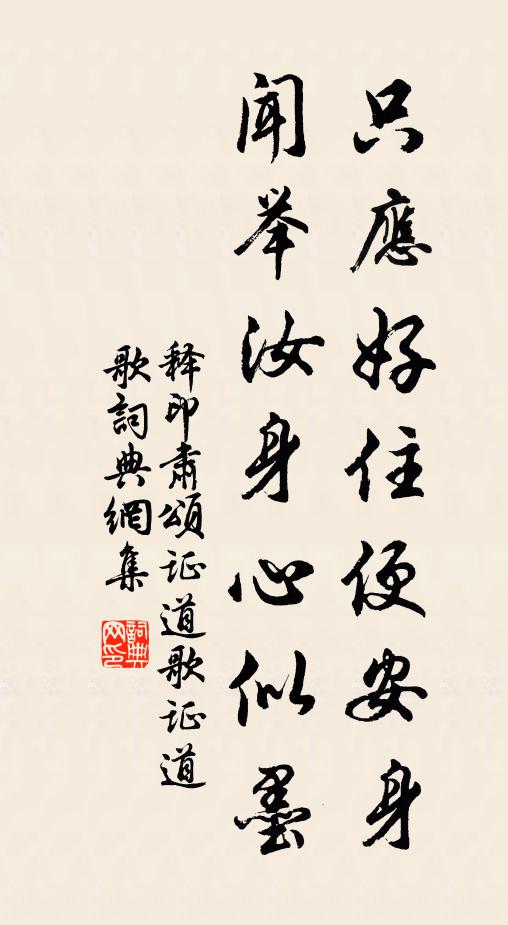 只應好住便安身
聞举汝身心似墨
释印肅頌证道歌证道
歌詞典網集
詞典网印